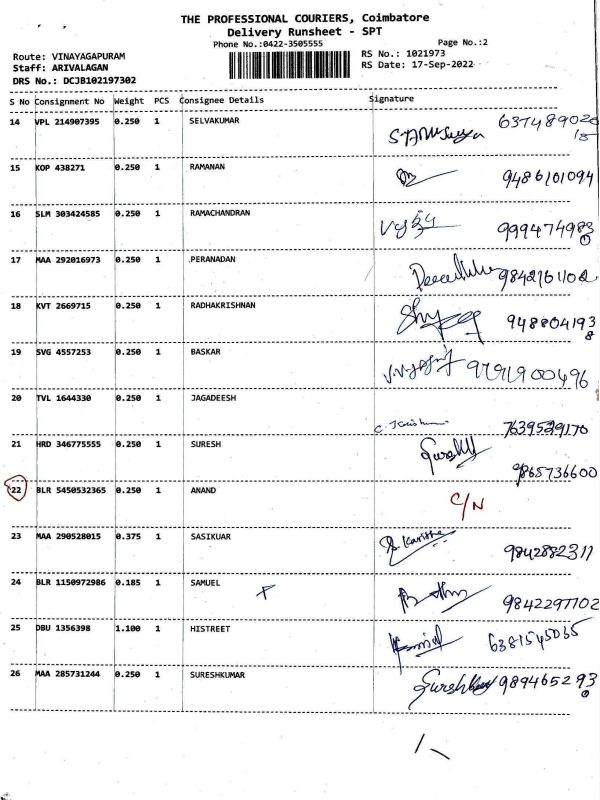 THE PROFESSIONAL COURIERS, Coimbatore
Delivery Runsheet - SPT
Phone No.:0422-3505555 Page No.:2
Route: VINAYAGAPURAM RS No.: 1021973
Staff: ARIVALAGAN RS Date: 17-Sep-2022
DRS No.: DCJB102197302
S No Consignment No Weight PCS Consignee Details Signature
14 VPL 214907395 0.250 1 SELVAKUMAR
15 KOP 438271 0.250 1 RAMANAN 9486101094
16 SLM 303424585 0.250 1 RAMACHANDRAN
17 MAA 292016973 0.250 1 PERANADAN 9842161102
18 KVT 2669715 0.250 1 RADHAKRISHNAN 948804193
8
19 SVG 4557253 0.250 1 BASKAR 9791900496
20 TVL 1644330 0.250 1 JAGADEESH 7639529170
21 HRD 346775555 0.250 1 SURESH Suresh 9865736600
22 BLR 5450532365 0.250 1 ANAND C/N
23 MAA 290528015 0.375 1 SASIKUAR 9842882311
24 BLR 1150972986 0.185 1 SAMUEL 9842297702
25 DBU 1356398 1.100 1 HISTREET 6381545035
26 MAA 285731244 0.250 1 SURESHKUMAR 989465293
0